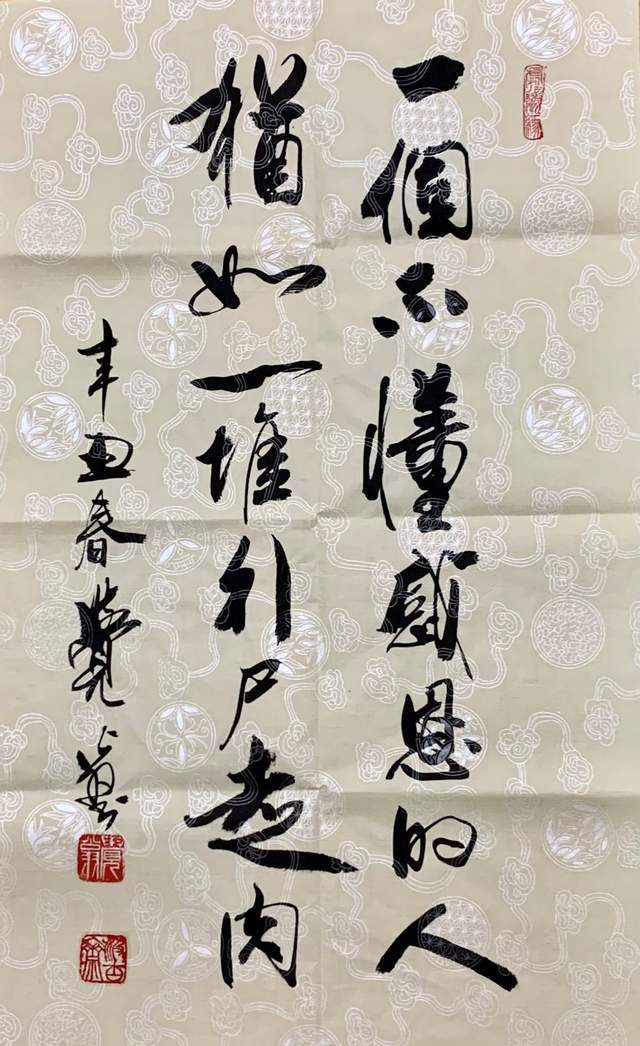 一個不懂感恩的人
猶如一堆行尸走肉
辛丑春覺